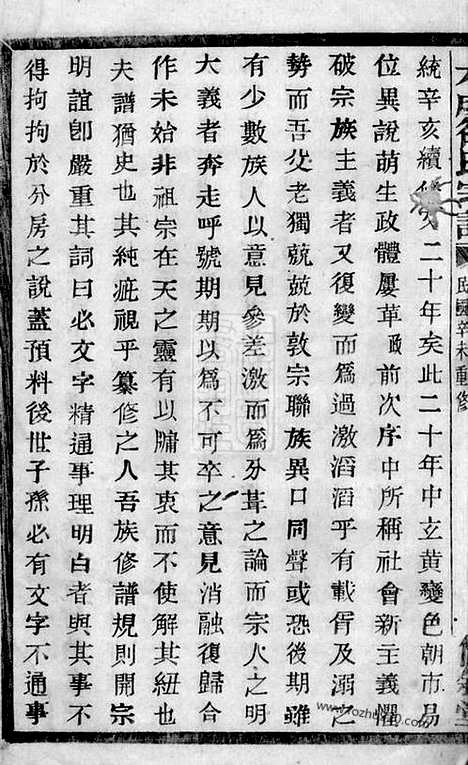 統辛亥續修又二十年矣此二十年中玄黃變色朝市易
位異說萌生政體屢革馴前次序中所稱社會新主義懼
破宗族主義者又復變而爲過激滔滔乎有載胥及溺之
勢而吾父老獨兢兢於敦宗聯族異口同聲或恐後期雖
有少數族人以意見參差激而爲分葺之論而宗人之明
大義者奔走呼號期期以爲不可卒之意見消融復歸合
作未始非祖宗在天之靈有以牖其衷而不使解其紐也
夫譜猶史也其純疵視乎纂修之人吾族修譜規則開宗
明誼卽嚴重其詞曰必文字精通事理明白者與其事不
得拘拘於分房之說蓋預料後世子孫必有文字不通事
民國辛未重修